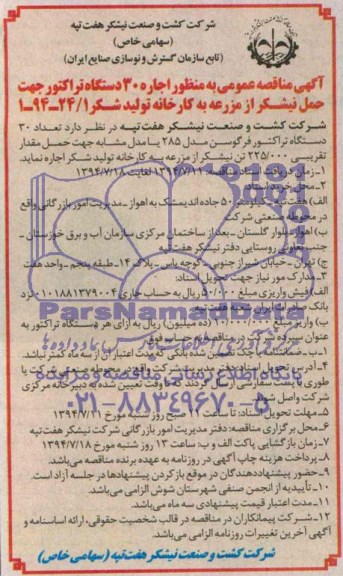 شرکت کشت و صنعت نیشکر هفت تپه
(سهامی خاص)
(تابع سازمان گسترش و نوسازی صنایع ایران)
آگهی مناقصه عمومی به منظور اجاره ۳۰ دستگاه تراکتور جهت
حمل نیشکر از مزرعه به کارخانه تولید شکر ۲۴/۱-۹۴-۱
شرکت کشت و صنعت نیشکر هفت تپه در نظر دارد تعداد ۳۰
دستگاه تراکتور فرگوسن مدل ۲۸۵ یا مدل مشابه جهت حمل مقدار
تقریبی ۲۲۵/۰۰۰ تن نیشکر از مزرعه به کارخانه تولید شکر اجاره نماید.
۱-زمان دریافت اسناد مناقصه ۱۳۹۴/۷/۱۱ لغایت ۱۳۹۴/۷/۱۸
۲-محل خرید اسناد
الف) هفت تپه - کیلومتر ۵۰ جاده اندیمشک به اهواز-مدیریت امور بازرگانی واقع
در محوطه صنعتی شرکت
ب) اهواز-بلوار گلستان - بعد از ساختمان مرکزی سازمان آب و برق خوزستان -
جنب تعاونی روستایی دفتر نیشکر هفت تپه
ج) تهران - خیابان شیراز جنوبی - کوچه یاس - پلاک ۱۴-طبقه پنجم - واحد هفت
۳-مدارک مورد نیاز جهت تحویل اسناد:
الف) فیش واریزی مبلغ ۵۰۰/۰۰۰ ریال به حساب جاری ۰۱۰۱۸۸۱۳۷۹۰۰۴ نزد
بانک صادرات ایران شعبه هفت تپه
ب) واریز مبلغ ۱۰/۰۰۰/۰۰۰ (ده میلیون) ریال به ازای هر دستگاه تراکتور به
عنوان سپرده شرکت در مناقصه به حساب فوق
۱-ب-ضمانتنامه یا چک تضمین شده بانکی که مدت اعتبار آن از سه ماه کمتر نباشد.
۴-آدرس تحویل اسناد: دفتر مدیریت شرکت واقع در محوطه صنعتی شرکت یا
طوری با پست سفارشی ارسال گردند که تا وقت تعیین شده به دبیرخانه مرکزی
شرکت واصل شود.
۵-مهلت تحویل اسناد: تا ساعت ۱۱ صبح روز شنبه مورخ ۱۳۹۴/۷/۲۱
۶-محل برگزاری مناقصه: دفتر مدیریت امور بازرگانی شرکت نیشکر هفت تپه
۷-زمان بازگشایی پاکت الف و ب: ساعت ۱۳ روز شنبه مورخ ۱۳۹۴/۷/۱۸
۸-پرداخت هزینه چاپ آگهی در روزنامه به عهده برنده مناقصه می‌باشد.
۹-حضور پیشنهاددهندگان در موقع باز کردن پیشنهادها در جلسه آزاد است.
۱۰-تأییدیه از انجمن صنفی شهرستان شوش الزامی می‌باشد.
۱۱-مدت اعتبار قیمت پیشنهادی سه ماه می‌باشد.
۱۲-شرکت پیمانکاران در مناقصه در قالب شخصیت حقوقی، ارائه اساسنامه و
آگهی آخرین تغییرات روزنامه الزامی می‌باشد.
شرکت کشت و صنعت نیشکر هفت تپه (سهامی خاص)
ParsNamadData
۰۲۱-۸۸۳۴۹۶۷۰-۵